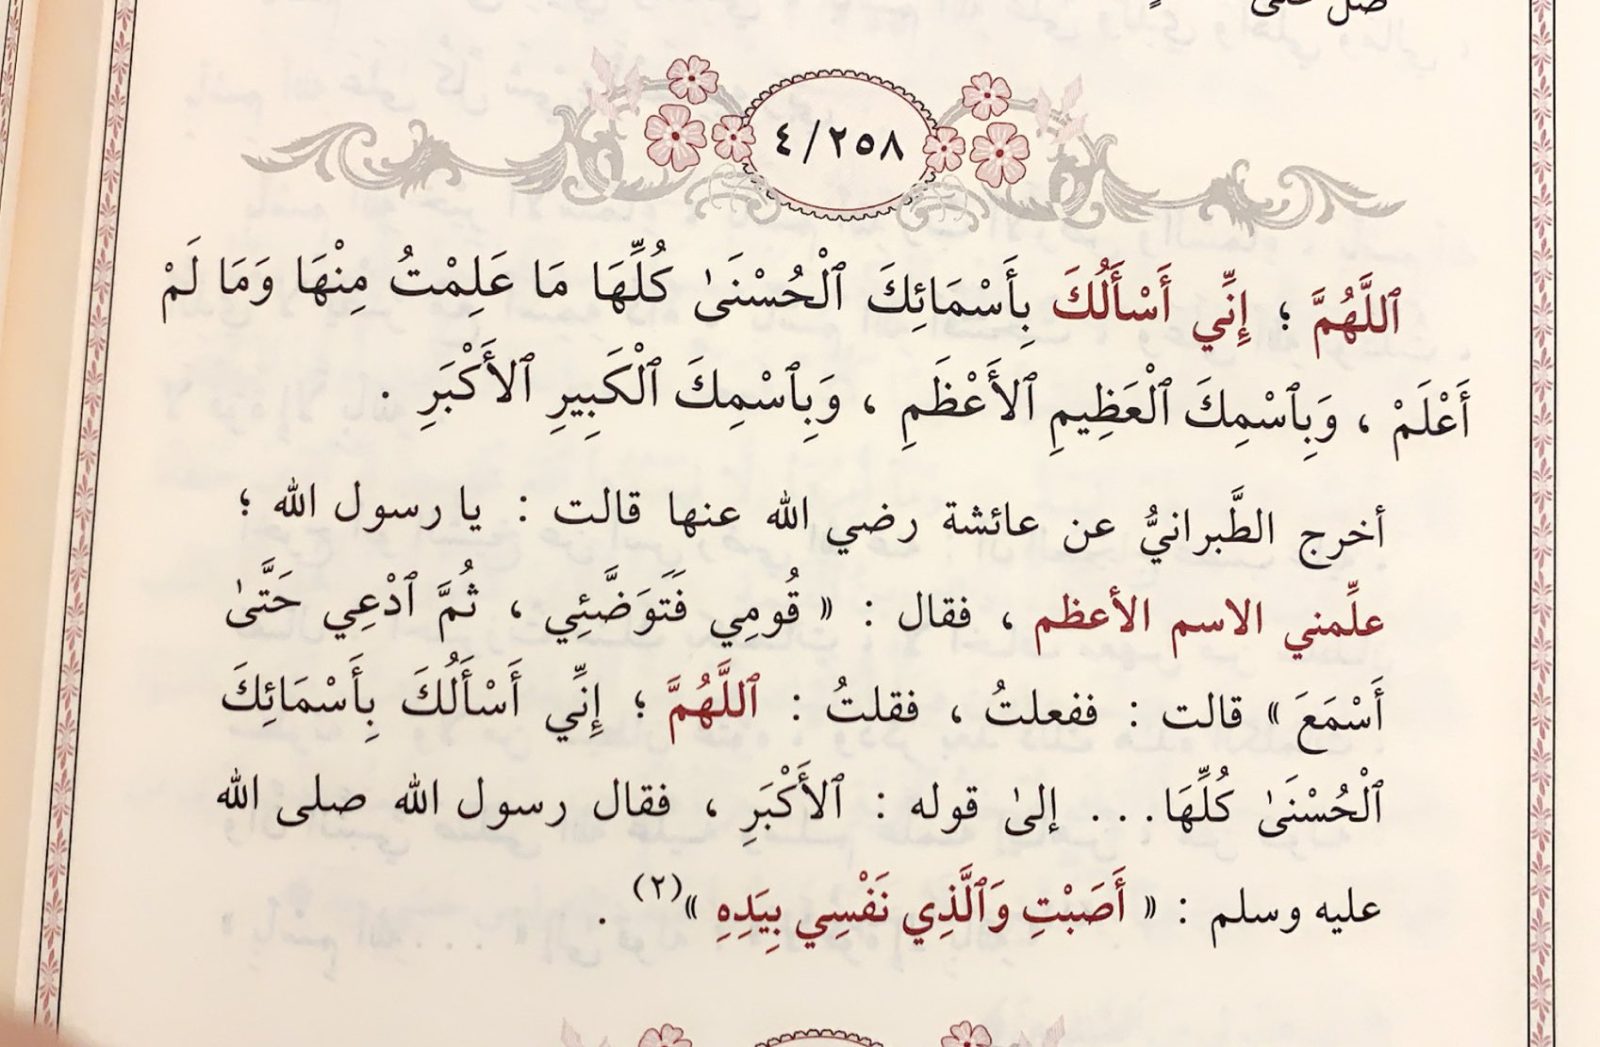 صل على
٤/٢٥٨
ٱللَّهُمَّ ؛ إِنِّي أَسْأَلُكَ بِأَسْمَائِكَ ٱلْحُسْنَىٰ كُلِّهَا مَا عَلِمْتُ مِنْهَا وَمَا لَمْ
أَعْلَمْ ، وَبِٱسْمِكَ ٱلْعَظِيمِ ٱلأَعْظَمِ ، وَبِٱسْمِكَ ٱلْكَبِيرِ ٱلأَكْبَرِ .
أخرج الطَّبرانيُّ عن عائشة رضي الله عنها قالت : يا رسول الله ؛
علِّمني الاسم الأعظم ، فقال : « قُومِي فَتَوَضَّئِي ، ثُمَّ ٱدْعِي حَتَّىٰ
أَسْمَعَ » قالت : ففعلتُ ، فقلتُ : ٱللَّهُمَّ ؛ إِنِّي أَسْأَلُكَ بِأَسْمَائِكَ
ٱلْحُسْنَىٰ كُلِّهَا... إلىٰ قوله : ٱلأَكْبَرِ ، فقال رسول الله صلى الله
عليه وسلم : « أَصَبْتِ وَٱلَّذِي نَفْسِي بِيَدِهِ »(٢) .